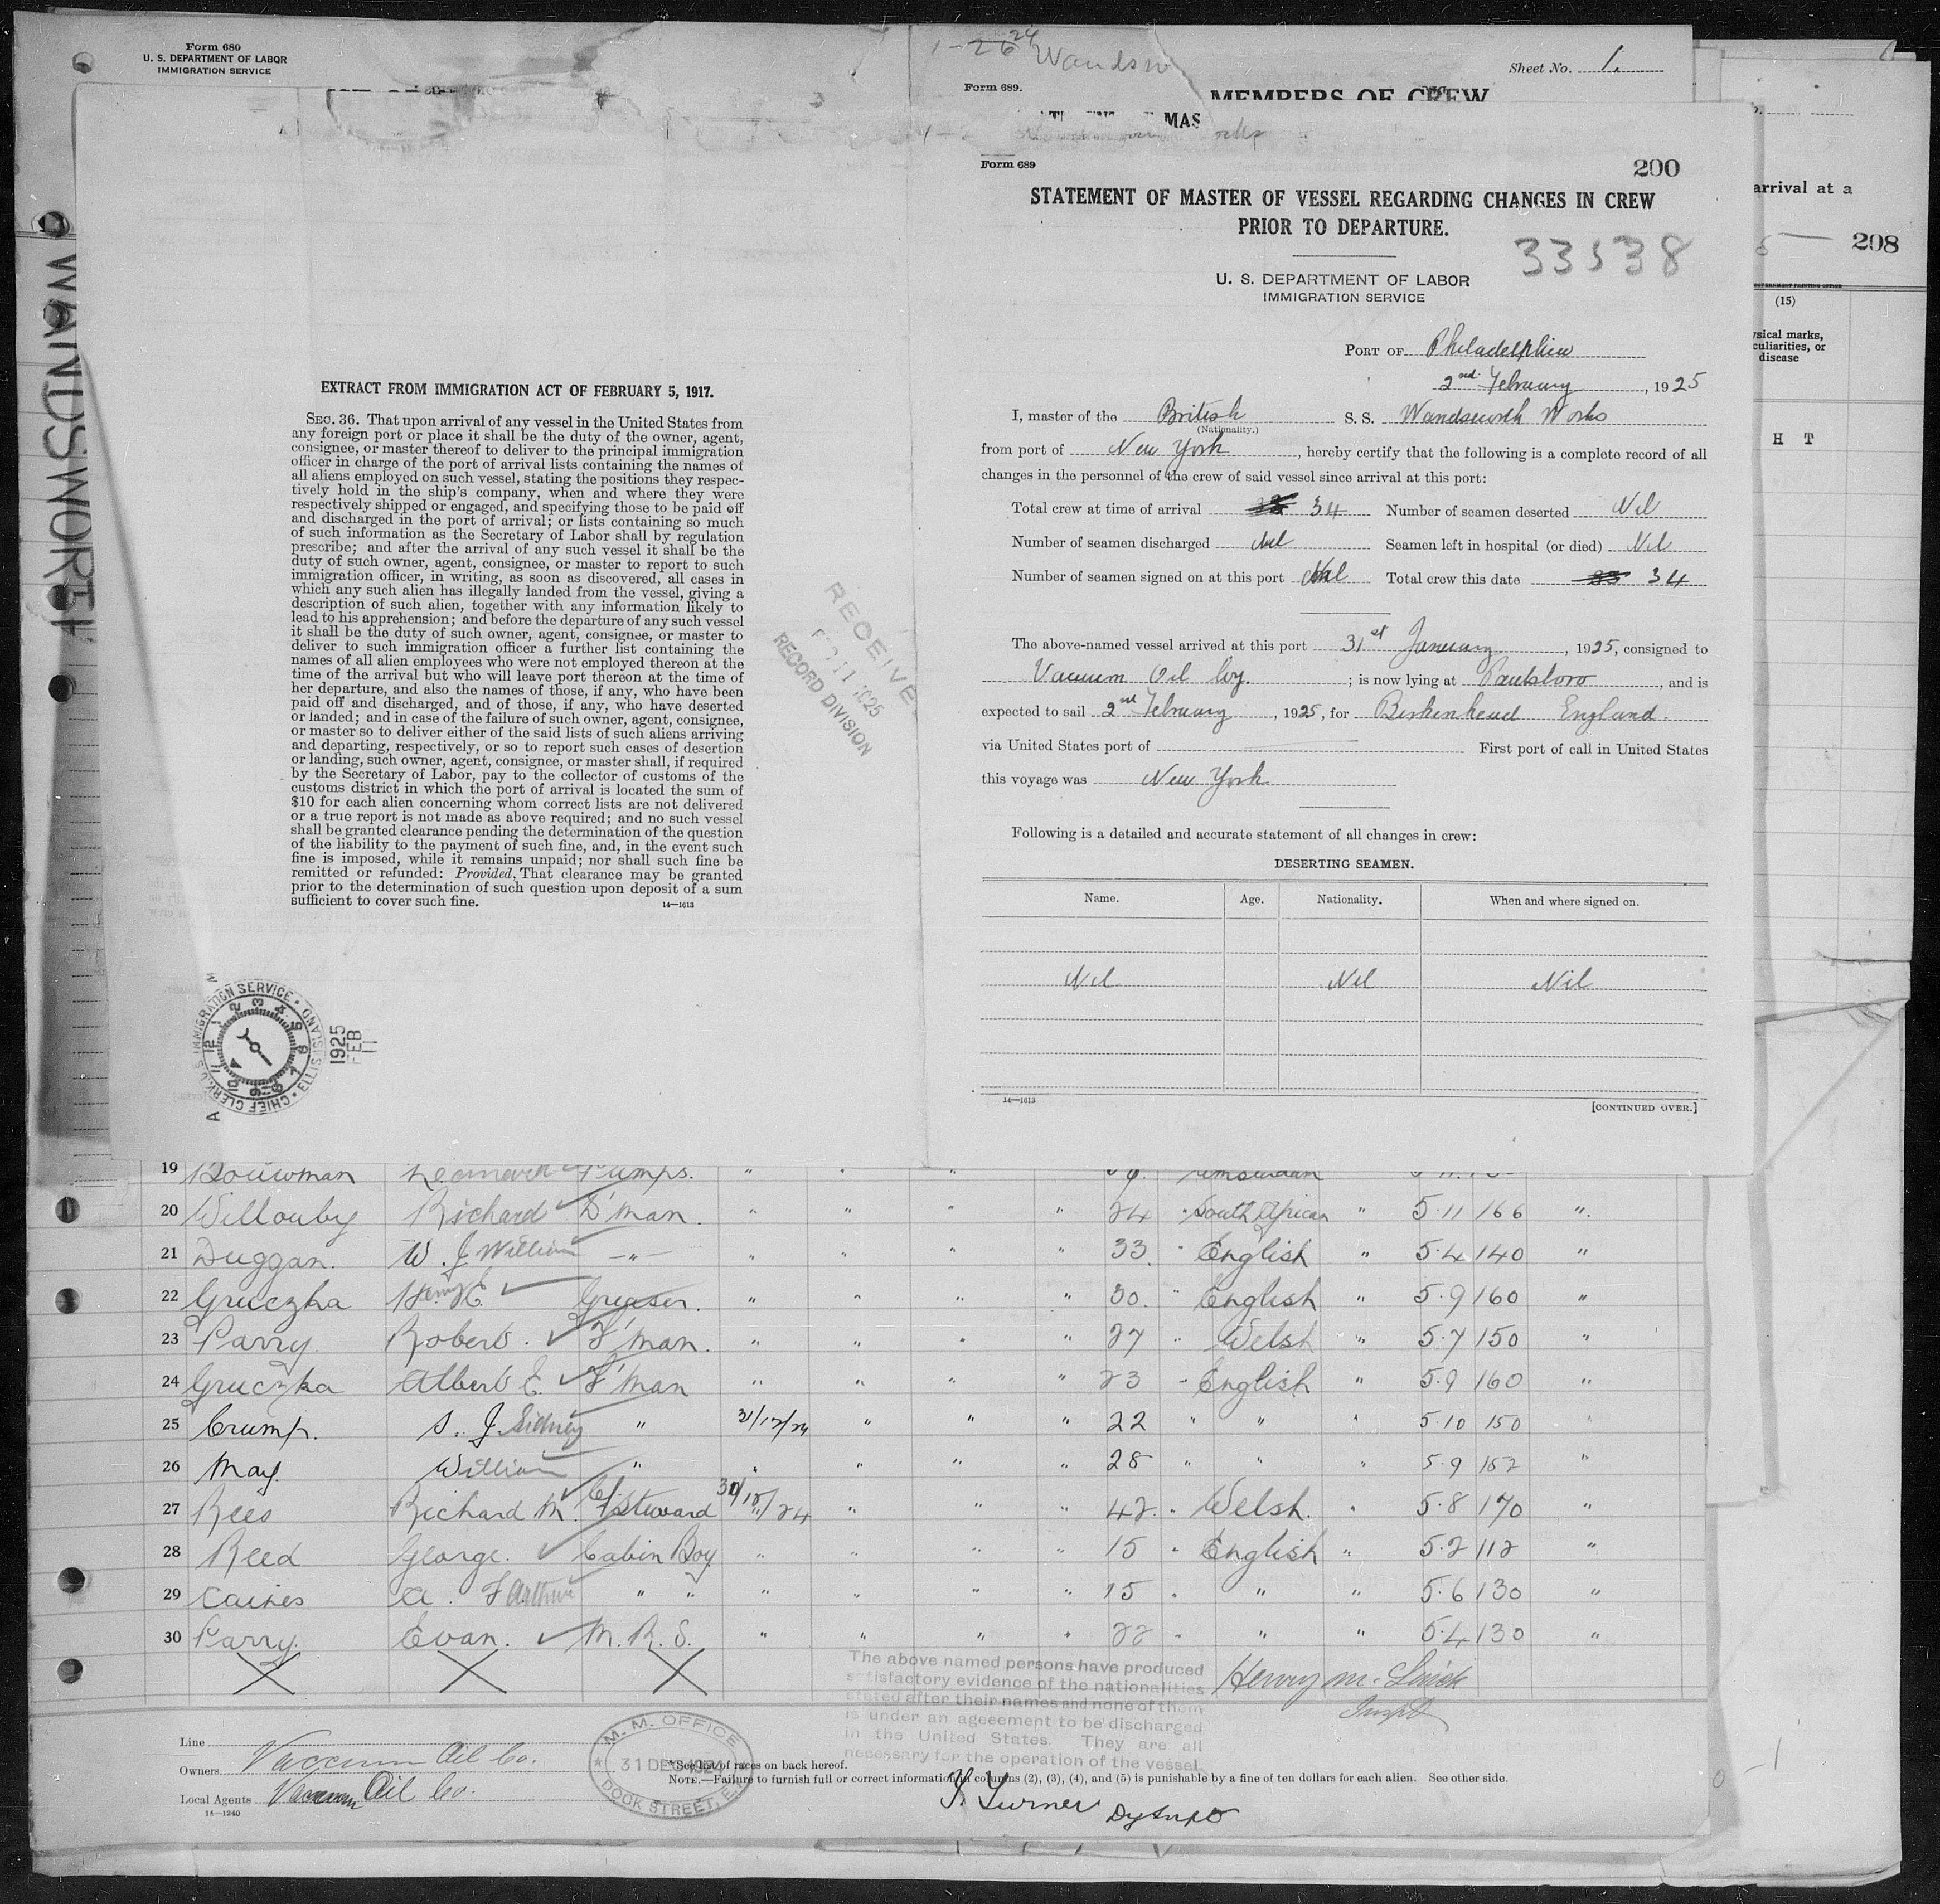 Form 680
U. S. DEPARTMENT OF LABOR
IMMIGRATION SERVICE
WANDSWORTH
1-26 24 Wandsw
Sheet No. 1.
Form 689.
MEMBERS OF CREW
MAS
Form 689
200
STATEMENT OF MASTER OF VESSEL REGARDING CHANGES IN CREW
PRIOR TO DEPARTURE.
33538
U. S. DEPARTMENT OF LABOR
IMMIGRATION SERVICE
PORT OF Philadelphia
2nd February, 1925
I, master of the British S. S. Wandsworth Works
(Nationality.)
from port of New York, hereby certify that the following is a complete record of all
changes in the personnel of the crew of said vessel since arrival at this port:
Total crew at time of arrival 34 Number of seamen deserted Nil
Number of seamen discharged Nil Seamen left in hospital (or died) Nil
Number of seamen signed on at this port Nil Total crew this date 34
The above-named vessel arrived at this port 31st January, 1925, consigned to
Vacuum Oil Coy. ; is now lying at Paulsboro, and is
expected to sail 2nd February, 1925, for Birkenhead England.
via United States port of First port of call in United States
this voyage was New York
Following is a detailed and accurate statement of all changes in crew:
DESERTING SEAMEN.
Name. Age. Nationality. When and where signed on.
Nil Nil Nil
14—1613
[CONTINUED OVER.]
EXTRACT FROM IMMIGRATION ACT OF FEBRUARY 5, 1917.
SEC. 36. That upon arrival of any vessel in the United States from
any foreign port or place it shall be the duty of the owner, agent,
consignee, or master thereof to deliver to the principal immigration
officer in charge of the port of arrival lists containing the names of
all aliens employed on such vessel, stating the positions they respec-
tively hold in the ship's company, when and where they were
respectively shipped or engaged, and specifying those to be paid off
and discharged in the port of arrival; or lists containing so much
of such information as the Secretary of Labor shall by regulation
prescribe; and after the arrival of any such vessel it shall be the
duty of such owner, agent, consignee, or master to report to such
immigration officer, in writing, as soon as discovered, all cases in
which any such alien has illegally landed from the vessel, giving a
description of such alien, together with any information likely to
lead to his apprehension; and before the departure of any such vessel
it shall be the duty of such owner, agent, consignee, or master to
deliver to such immigration officer a further list containing the
names of all alien employees who were not employed thereon at the
time of the arrival but who will leave port thereon at the time of
her departure, and also the names of those, if any, who have been
paid off and discharged, and of those, if any, who have deserted
or landed; and in case of the failure of such owner, agent, consignee,
or master so to deliver either of the said lists of such aliens arriving
and departing, respectively, or so to report such cases of desertion
or landing, such owner, agent, consignee, or master shall, if required
by the Secretary of Labor, pay to the collector of customs of the
customs district in which the port of arrival is located the sum of
$10 for each alien concerning whom correct lists are not delivered
or a true report is not made as above required; and no such vessel
shall be granted clearance pending the determination of the question
of the liability to the payment of such fine, and, in the event such
fine is imposed, while it remains unpaid; nor shall such fine be
remitted or refunded: Provided, That clearance may be granted
prior to the determination of such question upon deposit of a sum
sufficient to cover such fine.
14—1613
RECEIVE
11 1925
RECORD DIVISION
CHIEF CLERK, U.S. IMMIGRATION SERVICE • ELLIS ISLAND
1925
FEB
11
arrival at a
208
(15)
ysical marks,
culiarities, or
disease
H T
19 Bouwman Leonard Pumps. " " "
20 Willouby Richard D'man. " " " " 24 " South African " 5·11 166 "
21 Duggan. W. J William —"— " " " " 33. " English " 5·4 140 "
22 Gruczka Henry E. Greaser. " " " " 30. " English " 5·9 160 "
23 Parry. Robert. F'man. " " " " 27 " Welsh " 5·7 150 "
24 Gruczka Albert E. F'man " " " " 23 " English " 5·9 160 "
25 Crump. S. J. Sidney " 31/12/24 " " " 22 " " " 5·10 150 "
26 May. William " " " " " 28 " " " 5·9 152 "
27 Rees Richard M. C/Steward 30/12/24 " " " 42. " Welsh. " 5·8 170 "
28 Reed George. Cabin Boy " " " " 15 " English " 5·2 112 "
29 Caines A. F Arthur " " " " " " 15 " " " 5·6 130 "
30 Parry. Evan. M. R. S. " " " " 22 " " " 5·4 130 "
X X X
The above named persons have produced
satisfactory evidence of the nationalities
stated after their names and none of them
is under an ageeement to be discharged
in the United States. They are all
necessary for the operation of the vessel.
Henry M.
Inspt
M. M. OFFICE
31 DEC 1924
DOCK STREET, E.
Line
Owners Vaccum Oil Co.
Local Agents Vaccum Oil Co.
14—1240
*See list of races on back hereof.
NOTE.—Failure to furnish full or correct information in columns (2), (3), (4), and (5) is punishable by a fine of ten dollars for each alien. See other side.
Turner Dy Supt